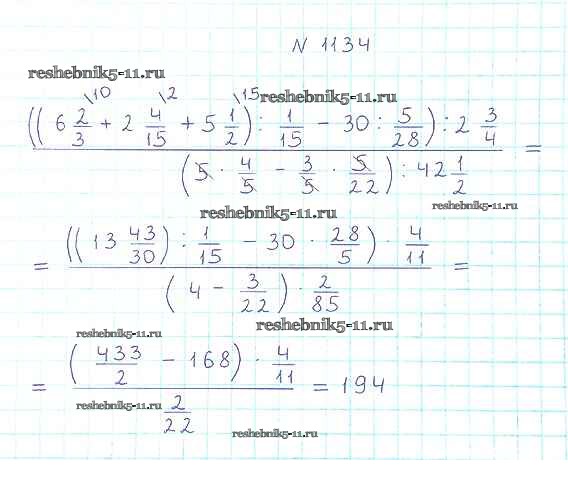 N 1134
reshebnik5-11.ru
\10 \2 \15 reshebnik5-11.ru
((6 2/3 + 2 4/15 + 5 1/2) : 1/15 − 30 : 5/28) : 2 3/4
(5 · 4/5 − 3/5 · 5/22) : 42 1/2 =
reshebnik5-11.ru reshebnik5-11.ru
= ((13 43/30) : 1/15 − 30 · 28/5) · 4/11
(4 − 3/22) · 2/85 =
reshebnik5-11.ru
reshebnik5-11.ru
= (433/2 − 168) · 4/11 = 194
reshebnik5-11.ru 2/22
reshebnik5-11.ru